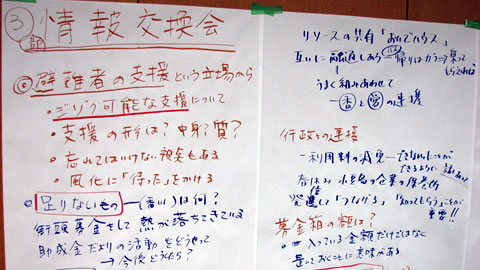 ③部 情報交換会
◎避難者の支援という立場から
・ジゾク可能な支援について
・支援の形は?中身?質?
・忘れてはいけない視点もある
・風化に「行った」をかける
・足りないもの―(香川)は何?
街頭募金をして 熱が落ちてきている
助成金だよりの活動 をどうやって
→今後どうたら?
リソースの共有「おいでハウス」
互いに融通しあう 帰りはカラ→乗って
もらえれば
うまく組みあわせて
との連携
行政との連接
―利用料の減免―できなかったことが
できるように
春休み 小豆島の企業の保養所
「つなげる」「知ってもらう」ことが
重要!!
募金箱の額は?
・入っている金額だけではなく
置いておくことに意味がある